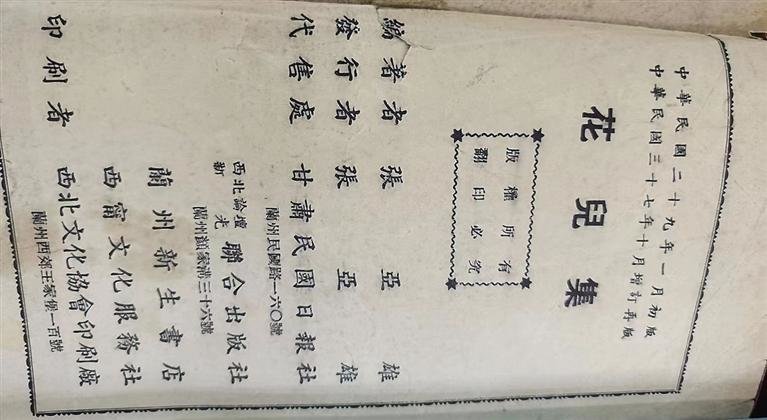 中華民國二十九年一月初版
中華民國三十七年十月增訂再版
花兒集
版權所有
翻印必究
編著者 張亞雄
發行者 張亞雄
代售處 甘肅民國日報社
蘭州民國路一六〇號
西北論壇
新光
聯合出版社
蘭州顏家溝三十六號
蘭州新生書店
西甯文化服務社
印刷者 西北文化協會印刷廠
蘭州西郊王家堡一百號